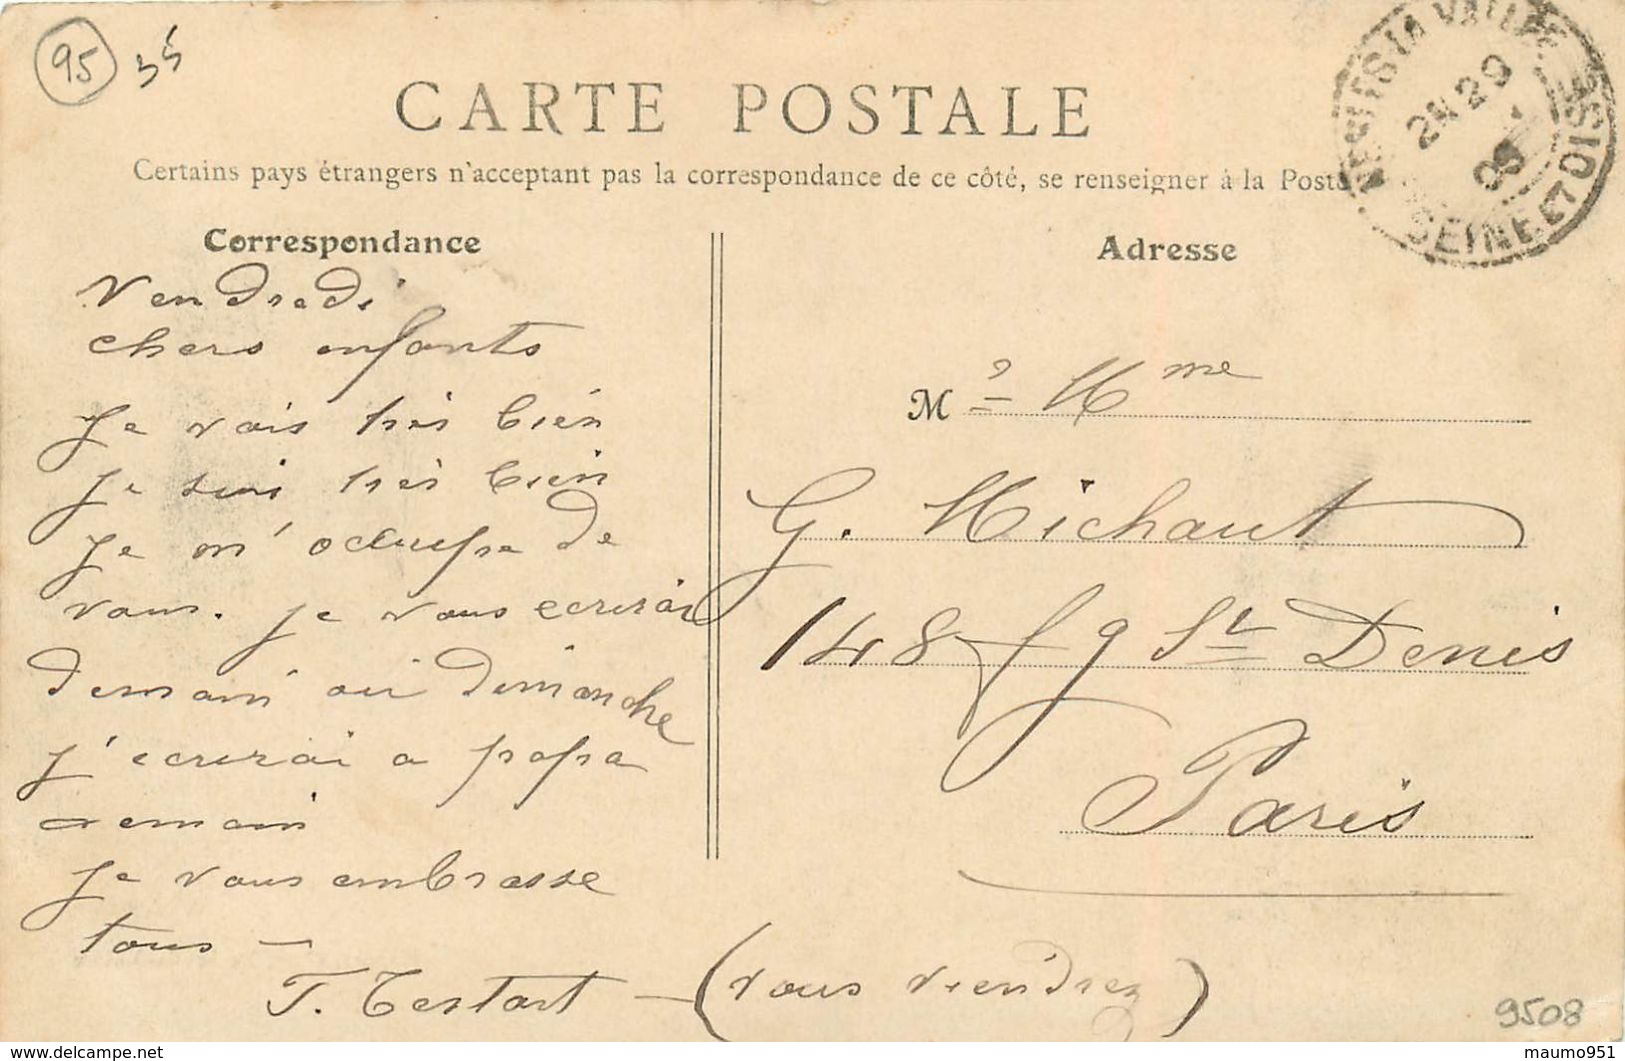 95
35
CARTE POSTALE
Certains pays étrangers n'acceptant pas la correspondance de ce côté, se renseigner à la Poste
NESLES LA VALLÉE
29
SEINE ET OISE
Correspondance
Vendredi
chers enfants
Je vais très bien
je suis très bien
Je m'occupe de
vous. je vous ecrirai
demain ou dimanche
j'ecrirai a papa
demain
je vous embrasse
tous —
T. Testart — (vous viendrez)
Adresse
M r Mme
G. Michaut
148 fg St Denis
Paris
9508
maumo951